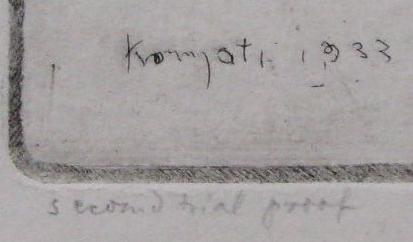 Komjati 1933
second trial proof